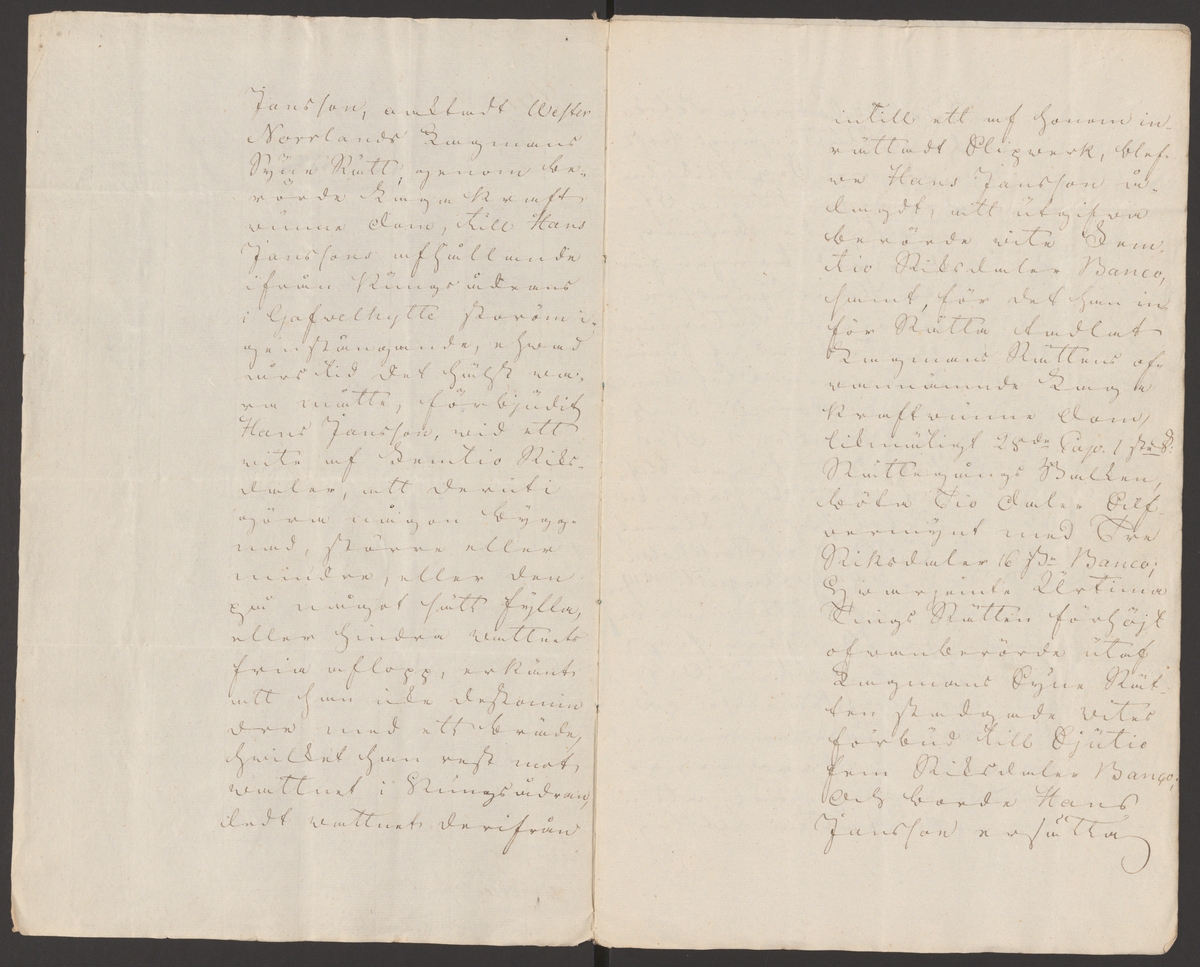 Jansson, anstadt Wester
Norrlands Lagmans
Syne Rätt, genom be-
rörde Laga kraft
vunne dom, till Hans
Janssons afhållande
ifrån Kungsådrans
i Gafvelhytte ström i-
genstängande, ehvad
årstid det hälst va-
ra måtte, förbjudit
Hans Jansson, vid ett
vite af Femtio Riks-
daler, att deruti
göra någon bygg-
nad, större eller
mindre, eller den
på något sätt fylla,
eller hindra vattnets
fria aflopp, erkänt
att han icke destomin
dre med ett bräde,
hvilket han rest mot
vattnet i Kungsådran,
ledt vattnet derifrån
intill ett af honom in-
rättadt Slipverk, blef-
ve Hans Jansson å-
lagdt, att utgifva
berörde vite Fem-
tio Riksdaler Banco,
samt, för det han in
för Rätta tadlat
Lagmans Rättens of-
vannämnde Laga
kraftvunne dom,
likmätigt 28de Cap. 1sta §.
Rättegångs Balken,
böta Tio daler Silf-
vermynt med Tre
Riksdaler 16 sk. Banco;
Hvarjemte Urtima
Tings Rätten förhöjt
ofvanberörde utaf
Lagmans Syne Rät-
ten stadgade vites
förbud till Sjutio
fem Riksdaler Banco;
Och borde Hans
Jansson ersätta